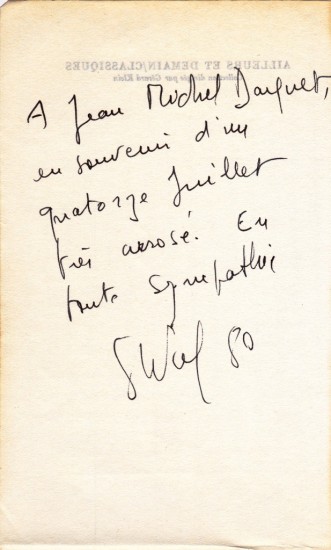 AILLEURS ET DEMAIN/CLASSIQUES
Collection dirigée par Gérard Klein
A Jean Michel
en souvenir d'un
quatorze Juillet
très arrosé. En
toute sympathie
80